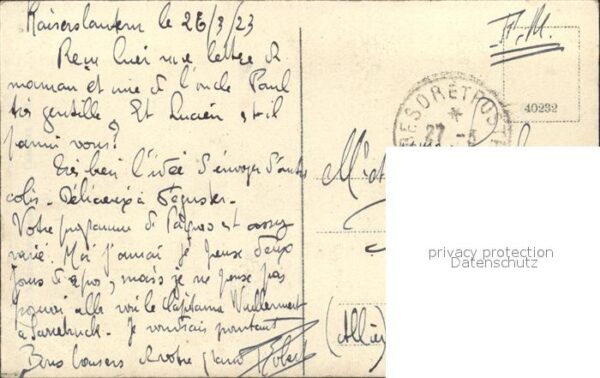 Kaiserslautern le 26/3/23
Reçu hier une lettre de
maman et une de l'oncle Paul
très gentille. Et Lucien est-il
parmi vous?
Très bien l'idée d'envoyer d'autres
colis. Délicieux à déguster.
Votre programme de Pâques est assez
varié. Moi j'aurai je pense deux
jours de repos, mais je ne pense pas
pouvoir aller voir le Capitaine Vuillermet
à Sarrebruck. Je voudrais pourtant
Bons baisers de votre grand
F.M.
TRESOR ET POSTES
27 - 3
40232
(Allier)
privacy protection
Datenschutz